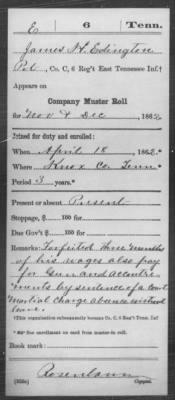 E 6 Tenn.
James H. Edington
Pvt, Co. C, 6 Reg't East Tennessee Inf.†
Appears on
Company Muster Roll
for Nov & Dec, 1862
Joined for duty and enrolled:
When April 18, 1862.
Where Knox Co. Tenn
Period 3 years.*
Present or absent Present
Stoppage, $ 100 for
Due Gov't $ 100 for
Remarks: Forfeited three months
of his wages also pay
for Gun and accoutre
ments by sentence of a Court
Martial charge absence without
leave.
†This organization subsequently became Co. C, 6 Reg't Tenn Inf
*See enrollment on card from muster-in roll.
Book mark:
(358c) Copyist.